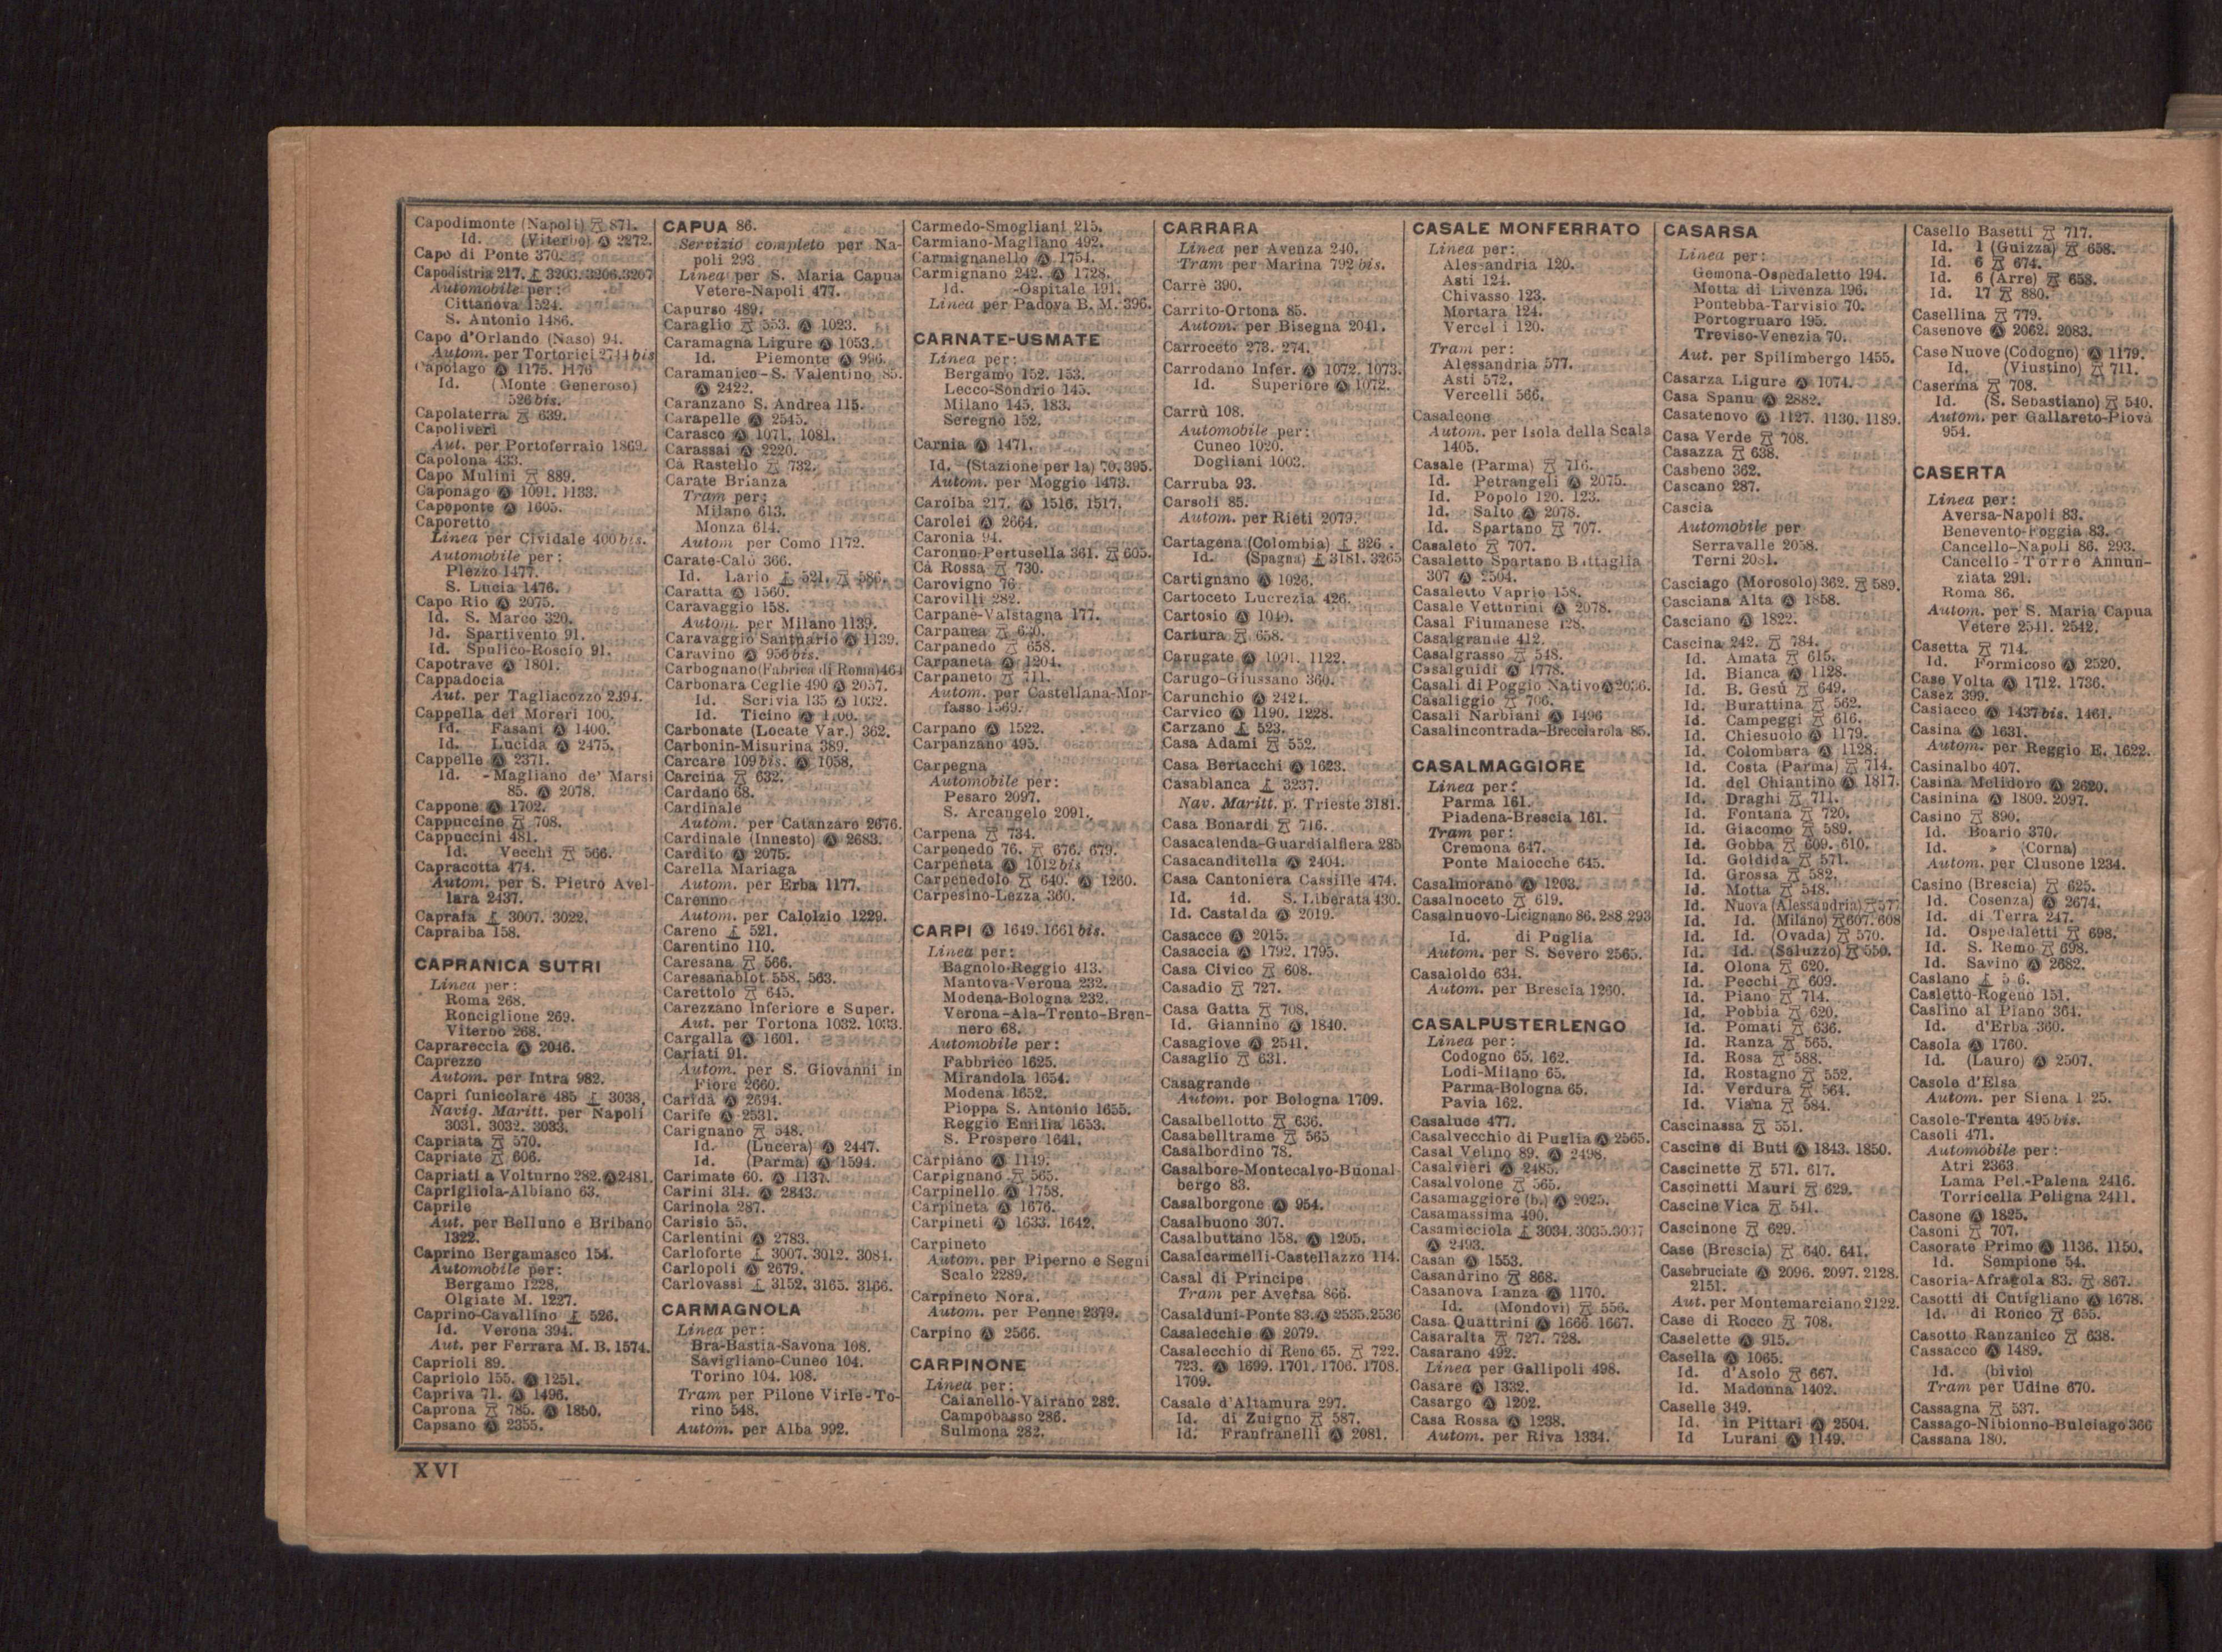 Capodimonte (Napoli) 871.
Id. (Viterbo) Ⓐ 2272.
Capo di Ponte 370.
Capodistria 217. 3203. 3206. 3207
Automobile per:
Cittanova 1524.
S. Antonio 1486.
Capo d'Orlando (Naso) 94.
Autom. per Tortorici 2744 bis
Capolago Ⓐ 1175. 1176
Id. (Monte Generoso)
526 bis.
Capolaterra 639.
Capoliveri
Aut. per Portoferraio 1869.
Capolona 433.
Capo Mulini 889.
Caponago Ⓐ 1091. 1133.
Capoponte Ⓐ 1605.
Caporetto
Linea per Cividale 400 bis.
Automobile per:
Plezzo 1477.
S. Lucia 1476.
Capo Rio Ⓐ 2075.
Id. S. Marco 320.
Id. Spartivento 91.
Id. Spulico-Roscio 91.
Capotrave Ⓐ 1801.
Cappadocia
Aut. per Tagliacozzo 2394.
Cappella dei Moreri 100.
Id. Fasani Ⓐ 1400.
Id. Lucida Ⓐ 2475.
Cappelle Ⓐ 2371.
Id. - Magliano de' Marsi
85. Ⓐ 2078.
Cappone Ⓐ 1702.
Cappuccine 708.
Cappuccini 481.
Id. Vecchi 566.
Capracotta 474.
Autom. per S. Pietro Avel-
lara 2437.
Capraia 3007. 3022.
Capralba 158.
CAPRANICA SUTRI
Linea per:
Roma 268.
Ronciglione 269.
Viterbo 268.
Caprareccia Ⓐ 2046.
Caprezzo
Autom. per Intra 982.
Capri funicolare 485 3038.
Navig. Maritt. per Napoli
3031. 3032. 3033.
Capriata 570.
Capriate 606.
Capriati a Volturno 282. Ⓐ 2481.
Caprigliola-Albiano 63.
Caprile
Aut. per Belluno e Bribano
1322.
Caprino Bergamasco 154.
Automobile per:
Bergamo 1228.
Olgiate M. 1227.
Caprino-Cavallino 526.
Id. Verona 394.
Aut. per Ferrara M. B. 1574.
Caprioli 89.
Capriolo 155. Ⓐ 1251.
Capriva 71. Ⓐ 1496.
Caprona 785. Ⓐ 1850.
Capsano Ⓐ 2355.
CAPUA 86.
Servizio completo per Na-
poli 293
Linea per S. Maria Capua
Vetere-Napoli 477.
Capurso 489.
Caraglio 553. Ⓐ 1023.
Caramagna Ligure Ⓐ 1053.
Id. Piemonte Ⓐ 996.
Caramanico - S. Valentino 85.
Ⓐ 2422.
Caranzano S. Andrea 115.
Carapelle Ⓐ 2545.
Carasco Ⓐ 1071. 1081.
Carassai Ⓐ 2220.
Cà Rastello 732.
Carate Brianza
Tram per:
Milano 613.
Monza 614.
Autom per Como 1172.
Carate-Calò 366.
Id. Lario 521. 586.
Caratta Ⓐ 1560.
Caravaggio 158.
Autom. per Milano 1139.
Caravaggio Santuario Ⓐ 1139.
Caravino Ⓐ 956 bis.
Carbognano (Fabrica di Roma) 464
Carbonara Ceglie 490 Ⓐ 2057.
Id. Scrivia 135 Ⓐ 1032.
Id. Ticino Ⓐ
Carbonate (Locate Var.) 362.
Carbonin-Misurina 389.
Carcare 109 bis. Ⓐ 1058.
Carcina 632.
Cardano 68.
Cardinale
Autom. per Catanzaro 2676.
Cardinale (Innesto) Ⓐ 2683.
Cardito Ⓐ 2075.
Carella Mariaga
Autom. per Erba 1177.
Carenno
Autom. per Calolzio 1229.
Careno 521.
Carentino 110.
Caresana 566.
Caresanablot 558. 563.
Carettolo 645.
Carezzano Inferiore e Super.
Aut. per Tortona 1032. 1033.
Cargalla Ⓐ 1601.
Cariati 91.
Autom. per S. Giovanni in
Fiore 2660.
Caridà Ⓐ 2694.
Carife Ⓐ 2531.
Carignano 548.
Id. (Lucera) Ⓐ 2447.
Id. (Parma) Ⓐ 1594.
Carimate 60. Ⓐ 1137.
Carini 314. Ⓐ 2843.
Carinola 287.
Carisio 55.
Carlentini Ⓐ 2783.
Carloforte 3007. 3012. 3084.
Carlopoli Ⓐ 2679.
Carlovassi 3152. 3165. 3166.
CARMAGNOLA
Linea per:
Bra-Bastia-Savona 108.
Savigliano-Cuneo 104.
Torino 104. 108.
Tram per Pilone Virle-To-
rino 548.
Autom. per Alba 992.
Carmedo-Smogliani 215.
Carmiano-Magliano 492.
Carmignanello Ⓐ 1754.
Carmignano 242. Ⓐ 1728.
Id. -Ospitale 191.
Linea per Padova B. M. 396.
CARNATE-USMATE
Linea per:
Bergamo 152. 153.
Lecco-Sondrio 145.
Milano 145. 183.
Seregno 152.
Carnia Ⓐ 1471.
Id. (Stazione per la) 70. 395.
Autom. per Moggio 1473.
Carolba 217. Ⓐ 1516. 1517.
Carolei Ⓐ 2664.
Caronia 94.
Caronno-Pertusella 361. 605.
Cà Rossa 730.
Carovigno 76
Carovilli 282.
Carpanè-Valstagna 177.
Carpanea 640.
Carpanedo 658.
Carpaneta Ⓐ 1204.
Carpaneto 711.
Autom. per Castellana-Mor-
fasso 1569.
Carpano Ⓐ 1522.
Carpanzano 495.
Carpegna
Automobile per:
Pesaro 2097.
S. Arcangelo 2091.
Carpena 734.
Carpenedo 76. 676. 679.
Carpeneta Ⓐ 1012 bis
Carpenedolo 640. Ⓐ 1260.
Carpesino-Lezza 360.
CARPI Ⓐ 1649. 1661 bis.
Linea per:
Bagnolo-Reggio 413.
Mantova-Verona 232.
Modena-Bologna 232.
Verona-Ala-Trento-Bren-
nero 68.
Automobile per:
Fabbrico 1625.
Mirandola 1654.
Modena 1652.
Pioppa S. Antonio 1655.
Reggio Emilia 1653.
S. Prospero 1641.
Carpiano Ⓐ 1149.
Carpignano 565.
Carpinello Ⓐ 1758.
Carpineta Ⓐ 1676.
Carpineti Ⓐ 1633. 1642.
Carpineto
Autom. per Piperno e Segni
Scalo 2289.
Carpineto Nora.
Autom. per Penne 2379.
Carpino Ⓐ 2566.
CARPINONE
Linea per:
Caianello-Vairano 282.
Campobasso 286.
Sulmona 282.
CARRARA
Linea per Avenza 240.
Tram per Marina 792 bis.
Carrè 390.
Carrito-Ortona 85.
Autom. per Bisegna 2041.
Carroceto 273. 274.
Carrodano Infer. Ⓐ 1072. 1073.
Id. Superiore Ⓐ 1072.
Carrù 108.
Automobile per:
Cuneo 1020.
Dogliani 1003.
Carruba 93.
Carsoli 85.
Autom. per Rieti 2079.
Cartagena (Colombia) 326
Id. (Spagna) 3181. 3265
Cartignano Ⓐ 1026.
Cartoceto Lucrezia 426.
Cartosio Ⓐ 1040.
Cartura 658.
Carugate Ⓐ 1091. 1122.
Carugo-Giussano 360.
Carunchio Ⓐ 2424.
Carvico Ⓐ 1190. 1228.
Carzano 523.
Casa Adami 552.
Casa Bertacchi Ⓐ 1623.
Casablanca 3237.
Nav. Maritt. p. Trieste 3181.
Casa Bonardi 716.
Casacalenda-Guardialfiera 285
Casacanditella Ⓐ 2404.
Casa Cantoniera Cassille 474.
Id. id. S. Liberata 430.
Id. Castalda Ⓐ 2019.
Casacce Ⓐ 2015.
Casaccia Ⓐ 1792. 1795.
Casa Civico 608.
Casadio 727.
Casa Gatta 708.
Id. Giannino Ⓐ 1840.
Casagiove Ⓐ 2541.
Casaglio 631.
Casagrande
Autom. por Bologna 1709.
Casalbellotto 636.
Casabelltrame 565
Casalbordino 78.
Casalbore-Montecalvo-Buonal-
bergo 83.
Casalborgone Ⓐ 954.
Casalbuono 307.
Casalbuttano 158. Ⓐ 1205.
Casalcarmelli-Castellazzo 114.
Casal di Principe
Tram per Aversa 866.
Casalduni-Ponte 83. Ⓐ 2535. 2536
Casalecchio Ⓐ 2079.
Casalecchio di Reno 65. 722.
723. Ⓐ 1699. 1701. 1706. 1708.
1709.
Casale d'Altamura 297.
Id. di Zuigno 587.
Id. Franfranelli Ⓐ 2081.
CASALE MONFERRATO
Linea per:
Alessandria 120.
Asti 124.
Chivasso 123.
Mortara 124.
Vercelli 120.
Tram per:
Alessandria 577.
Asti 572.
Vercelli 566.
Casaleone
Autom. per Isola della Scala
1405.
Casale (Parma) 716.
Id. Petrangeli Ⓐ 2075.
Id. Popolo 120. 123.
Id. Salto Ⓐ 2078.
Id. Spartano 707.
Casaleto 707.
Casaletto Spartano Battaglia
307 Ⓐ 2504.
Casaletto Vaprio 158.
Casale Vetturini Ⓐ 2078.
Casal Fiumanese 128.
Casalgrande 412.
Casalgrasso 548.
Casalguidi Ⓐ 1778.
Casali di Poggio Nativo Ⓐ 2036.
Casaliggio 706.
Casali Narbiani Ⓐ 1496
Casalincontrada-Brecciarola 85.
CASALMAGGIORE
Linea per:
Parma 161.
Piadena-Brescia 161.
Tram per:
Cremona 647.
Ponte Maiocche 645.
Casalmorano Ⓐ 1203.
Casalnoceto 619.
Casalnuovo-Licignano 86. 288 293
Id. di Puglia
Autom. per S. Severo 2565.
Casaloldo 634.
Autom. per Brescia 1260.
CASALPUSTERLENGO
Linea per:
Codogno 65. 162.
Lodi-Milano 65.
Parma-Bologna 65.
Pavia 162.
Casaluce 477.
Casalvecchio di Puglia Ⓐ 2565.
Casal Velino 89. Ⓐ 2498.
Casalvieri Ⓐ 2485.
Casalvolone 565.
Casamaggiore (b.) Ⓐ 2025.
Casamassima 490.
Casamicciola 3034. 3035. 3037
Ⓐ 2493.
Casan Ⓐ 1553.
Casandrino 868.
Casanova Lanza Ⓐ 1170.
Id. (Mondovì) 556.
Casa Quattrini Ⓐ 1666. 1667.
Casaralta 727. 728.
Casarano 492.
Linea per Gallipoli 498.
Casare Ⓐ 1332.
Casargo Ⓐ 1202.
Casa Rossa Ⓐ 1238.
Autom. per Riva 1334.
CASARSA
Linea per:
Gemona-Ospedaletto 194.
Motta di Livenza 196.
Pontebba-Tarvisio 70.
Portogruaro 195.
Treviso-Venezia 70.
Aut. per Spilimbergo 1455.
Casarza Ligure Ⓐ 1074.
Casa Spanu Ⓐ 2882.
Casatenovo Ⓐ 1127. 1130. 1189.
Casa Verde 708.
Casazza 638.
Casbeno 362.
Cascano 287.
Cascia
Automobile per
Serravalle 2058.
Terni 2081.
Casciago (Morosolo) 362. 589.
Casciana Alta Ⓐ 1858.
Casciano Ⓐ 1822.
Cascina 242. 784.
Id. Amata 615.
Id. Bianca Ⓐ 1128.
Id. B. Gesù 649.
Id. Burattina 562.
Id. Campeggi 616.
Id. Chiesuolo Ⓐ 1179.
Id. Colombara Ⓐ 1128.
Id. Costa (Parma) 714.
Id. del Chiantino Ⓐ 1817.
Id. Draghi 711.
Id. Fontana 720.
Id. Giacomo 589.
Id. Gobba 609. 610.
Id. Goldida 571.
Id. Grossa 582.
Id. Motta 548.
Id. Nuova (Alessandria) 577
Id. Id. (Milano) 607. 608
Id. Id. (Ovada) 570.
Id. Id. (Saluzzo) 550.
Id. Olona 620.
Id. Pecchi 609.
Id. Piano 714.
Id. Pobbia 620.
Id. Pomati 636.
Id. Ranza 565.
Id. Rosa 588.
Id. Rostagno 552.
Id. Verdura 564.
Id. Viana 584.
Cascinassa 551.
Cascine di Buti Ⓐ 1843. 1850.
Cascinette 571. 617.
Cascinetti Mauri 629.
Cascine Vica 541.
Cascinone 629.
Case (Brescia) 640. 641.
Casebruciate Ⓐ 2096. 2097. 2128.
2151.
Aut. per Montemarciano 2122.
Case di Rocco 708.
Caselette Ⓐ 915.
Casella Ⓐ 1065.
Id. d'Asolo 667.
Id. Madonna 1402.
Caselle 349.
Id. in Pittari Ⓐ 2504.
Id Lurani Ⓐ 1149.
Casello Basetti 717.
Id. 1 (Guizza) 658.
Id. 6 674.
Id. 6 (Arre) 658.
Id. 17 880.
Casellina 779.
Casenove Ⓐ 2062. 2083.
Case Nuove (Codogno) Ⓐ 1179.
Id. (Viustino) 711.
Caserma 708.
Id. (S. Sebastiano) 540.
Autom. per Gallareto-Piovà
954.
CASERTA
Linea per:
Aversa-Napoli 83.
Benevento-Foggia 83.
Cancello-Napoli 86. 293.
Cancello-Torre Annun-
ziata 291.
Roma 86.
Autom. per S. Maria Capua
Vetere 2541. 2542.
Casetta 714.
Id. Formicoso Ⓐ 2520.
Case Volta Ⓐ 1712. 1736.
Casez 399.
Casiacco Ⓐ 1437 bis. 1461.
Casina Ⓐ 1631.
Autom. per Reggio E. 1622.
Casinalbo 407.
Casina Melidoro Ⓐ 2620.
Casinina Ⓐ 1809. 2097.
Casino 890.
Id. Boario 370.
Id. » (Corna)
Autom. per Clusone 1234.
Casino (Brescia) 625.
Id. Cosenza) Ⓐ 2674.
Id. di Terra 247.
Id. Ospedaletti 698.
Id. S. Remo 698.
Id. Savino Ⓐ 2682.
Caslano
Casletto-Rogeno 151.
Caslino al Piano 364.
Id. d'Erba 360.
Casola Ⓐ 1760.
Id. (Lauro) Ⓐ 2507.
Casole d'Elsa
Autom. per Siena 1 25.
Casole-Trenta 495 bis.
Casoli 471.
Automobile per:
Atri 2363.
Lama Pel.-Palena 2416.
Torricella Peligna 2411.
Casone Ⓐ 1825.
Casoni 707.
Casorate Primo Ⓐ 1136. 1150.
Id. Sempione 54.
Casoria-Afragola 83. 867.
Casotti di Cutigliano Ⓐ 1678.
Id. di Ronco 655.
Casotto Ranzanico 638.
Cassacco Ⓐ 1489.
Id. (bivio)
Tram per Udine 670.
Cassagna 537.
Cassago-Nibionno-Bulciago 366
Cassana 180.
XVI